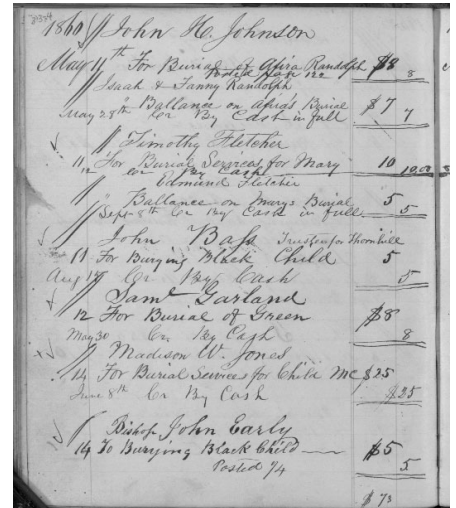 1860 // John H. Johnson
May 11th For Burial of Afira Randolph $8 8
Posted Page 122
// Isaah & Fanny Randolph
" Ballance on Afira's Burial $7
May 28th Cr By Cash in full 7
// Timothy Fletcher
11 For Burial Services for Mary 10
12 Cr By Cash 10.00
Edmund Fletcher
" Ballance on Marys Burial 5
Sept 8th Cr By Cash in full 5
John Bass Trustee for Thornhill
11 For Burying Black Child 5
Aug 17 Cr By Cash 5
// Saml Garland
12 For Burial of Green $8
May 30 Cr By Cash 8
// Madison W. Jones
14 For Burial Services for Child MC $25
June 8th Cr By Cash $25
Bishop John Early
14 To Burying Black Child $5
5
Posted 1/4
$ 73